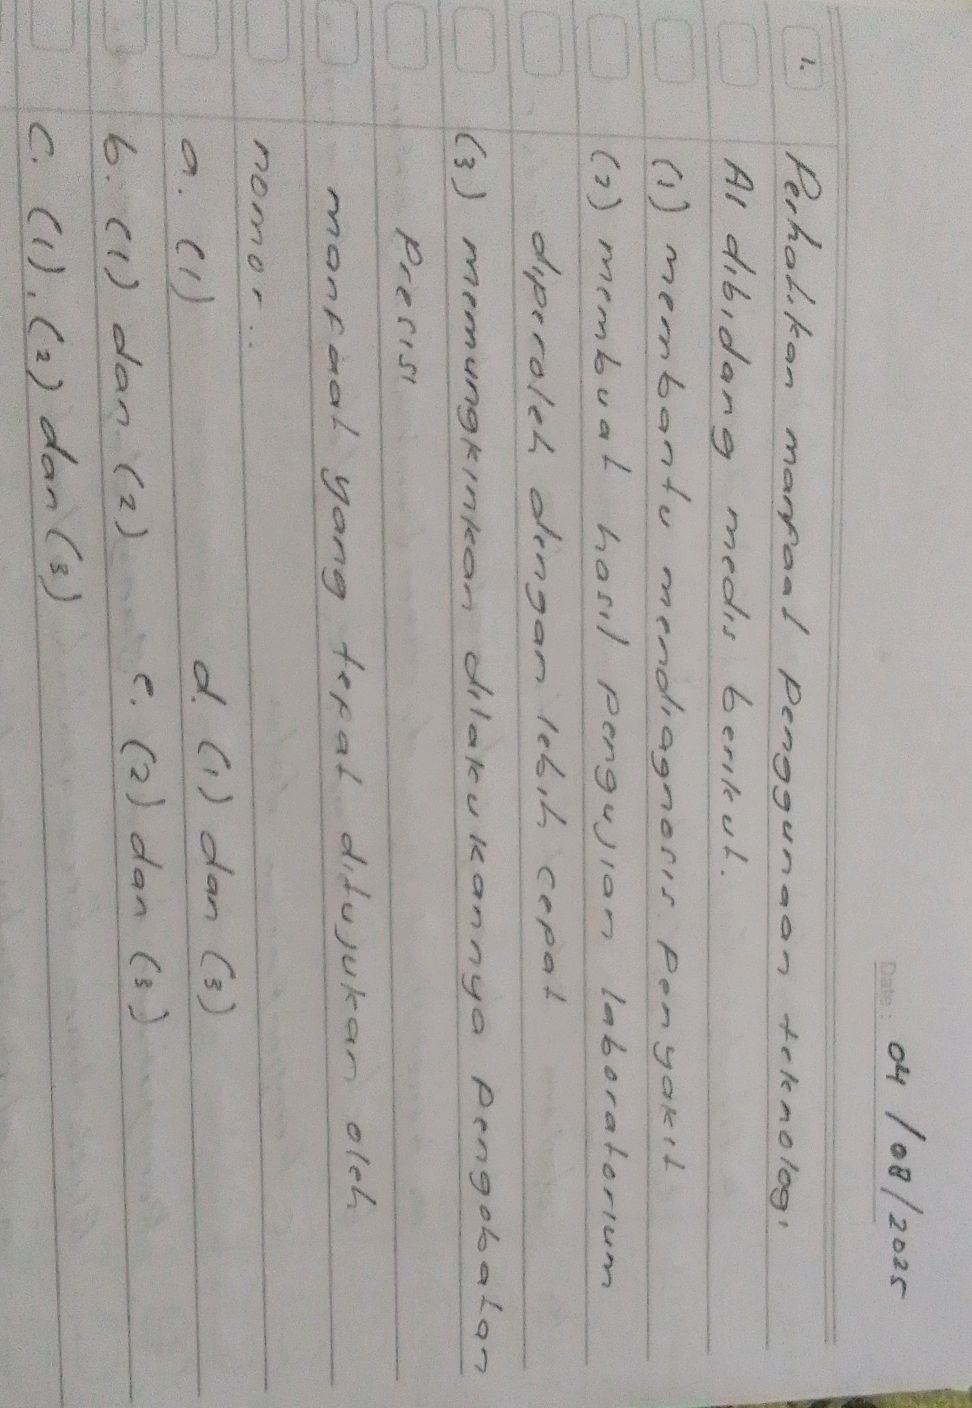 Date: 04/08/2025
1. Perhatikan manfaat penggunaan teknologi
AI dibidang medis berikut.
(1) membantu mendiagnosis penyakit
(2) membuat hasil pengujian laboratorium
diperoleh dengan lebih cepat
(3) memungkinkan dilakukannya pengobatan
presisi
manfaat yang tepat ditujukan oleh
nomor..
a. (1) d. (1) dan (3)
b. (1) dan (2) e. (2) dan (3)
c. (1), (2) dan (3)